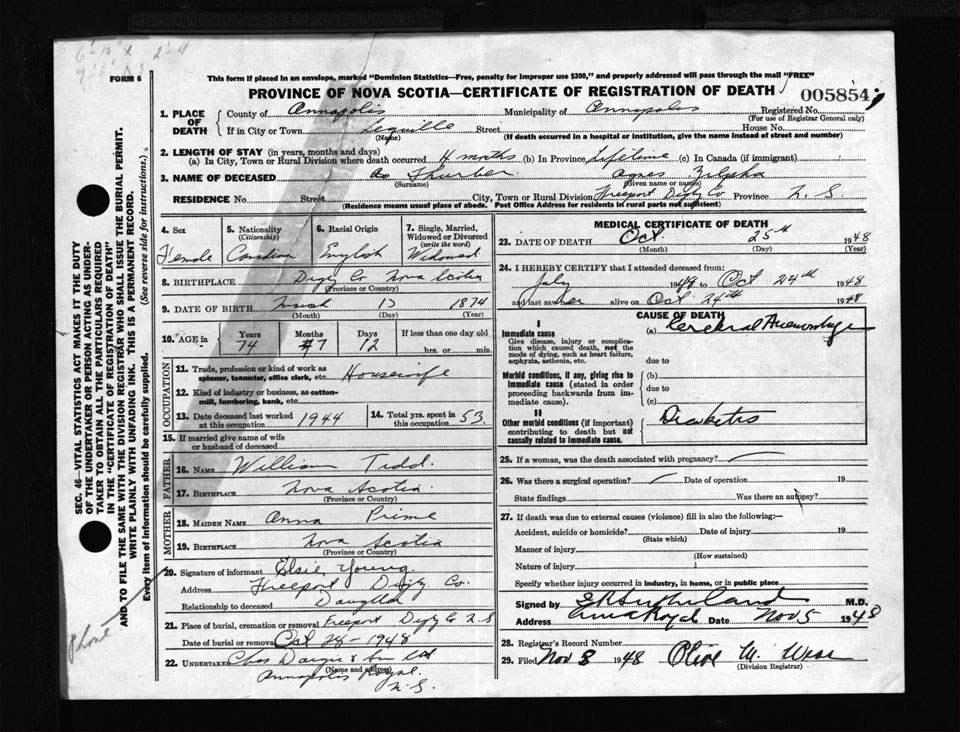 FORM 6
This form if placed in an envelope, marked "Dominion Statistics—Free, penalty for improper use $300," and properly addressed will pass through the mail "FREE"
PROVINCE OF NOVA SCOTIA—CERTIFICATE OF REGISTRATION OF DEATH
005854
1. PLACE OF DEATH
County of Annapolis Municipality of Annapolis Registered No.
(For use of Registrar General only)
If in City or Town Lequille Street House No.
(Name) (If death occurred in a hospital or institution, give the name instead of street and number)
2. LENGTH OF STAY (in years, months and days)
(a) In City, Town or Rural Division where death occurred 4 months (b) In Province Lifetime (c) In Canada (if immigrant)
3. NAME OF DECEASED Thurber Agnes Zilpha
(Surname) (Given name or names)
RESIDENCE No. Street City, Town or Rural Division Freeport Digby Co Province N. S.
(Residence means usual place of abode. Post Office Address for residents in rural parts not sufficient)
4. Sex
Female
5. Nationality
(Citizenship)
Canadian
6. Racial Origin
English
7. Single, Married, Widowed or Divorced
(write the word)
Widowed
8. BIRTHPLACE Digby Co Nova Scotia
(Province or Country)
9. DATE OF BIRTH March 13 1874
(Month) (Day) (Year)
10. AGE in
Years Months Days If less than one day old
74 7 12 hrs. or min.
OCCUPATION
11. Trade, profession or kind of work as spinner, teamster, office clerk, etc. Housewife
12. Kind of industry or business, as cotton-mill, lumbering, bank, etc.
13. Date deceased last worked at this occupation 1944
14. Total yrs. spent in this occupation 53
15. If married give name of wife or husband of deceased
FATHER
16. NAME William Tidd.
17. BIRTHPLACE Nova Scotia
(Province or Country)
MOTHER
18. MAIDEN NAME Anna Prime
19. BIRTHPLACE Nova Scotia
(Province or Country)
20. Signature of informant Elsie Young
Address Freeport Digby Co.
Relationship to deceased Daughter
21. Place of burial, cremation or removal Freeport Digby Co N S
Date of burial or removal Oct 28 - 1948
22. UNDERTAKER Chas
(Name and address)
Annapolis Royal
N. S.
MEDICAL CERTIFICATE OF DEATH
23. DATE OF DEATH Oct. 25th 1948
(Month) (Day) (Year)
24. I HEREBY CERTIFY that I attended deceased from:
July 1948 to Oct 24th 1948
and last saw her alive on Oct 24th 1948
CAUSE OF DEATH
I
Immediate cause
Give disease, injury or complication which caused death, not the mode of dying, such as heart failure, asphyxia, asthenia, etc.
(a) Cerebral Haemorrhage
due to
Morbid conditions, if any, giving rise to immediate cause (stated in order proceeding backwards from immediate cause).
(b)
due to
(c)
II
Other morbid conditions (if important) contributing to death but not causally related to immediate cause.
Diabetes
25. If a woman, was the death associated with pregnancy?
26. Was there a surgical operation? Date of operation 19
State findings Was there an autopsy?
27. If death was due to external causes (violence) fill in also the following:—
Accident, suicide or homicide? Date of injury 19
(State which)
Manner of injury
(How sustained)
Nature of injury
Specify whether injury occurred in industry, in home, or in public place
Signed by Sutherland M.D.
Address Anna Royal Date Nov 5 1948
28. Registrar's Record Number
29. Filed Nov 8 1948 Olive M. Wear
(Division Registrar)
SEC. 46—VITAL STATISTICS ACT MAKES IT THE DUTY
OF THE UNDERTAKER OR PERSON ACTING AS UNDER-
TAKER TO OBTAIN ALL THE PARTICULARS REQUIRED
IN THE "CERTIFICATE OF REGISTRATION OF DEATH"
AND TO FILE THE SAME WITH THE DIVISION REGISTRAR WHO SHALL ISSUE THE BURIAL PERMIT.
WRITE PLAINLY WITH UNFADING INK. THIS IS A PERMANENT RECORD.
Every item of information should be carefully supplied. (See reverse side for instructions.)
Phone